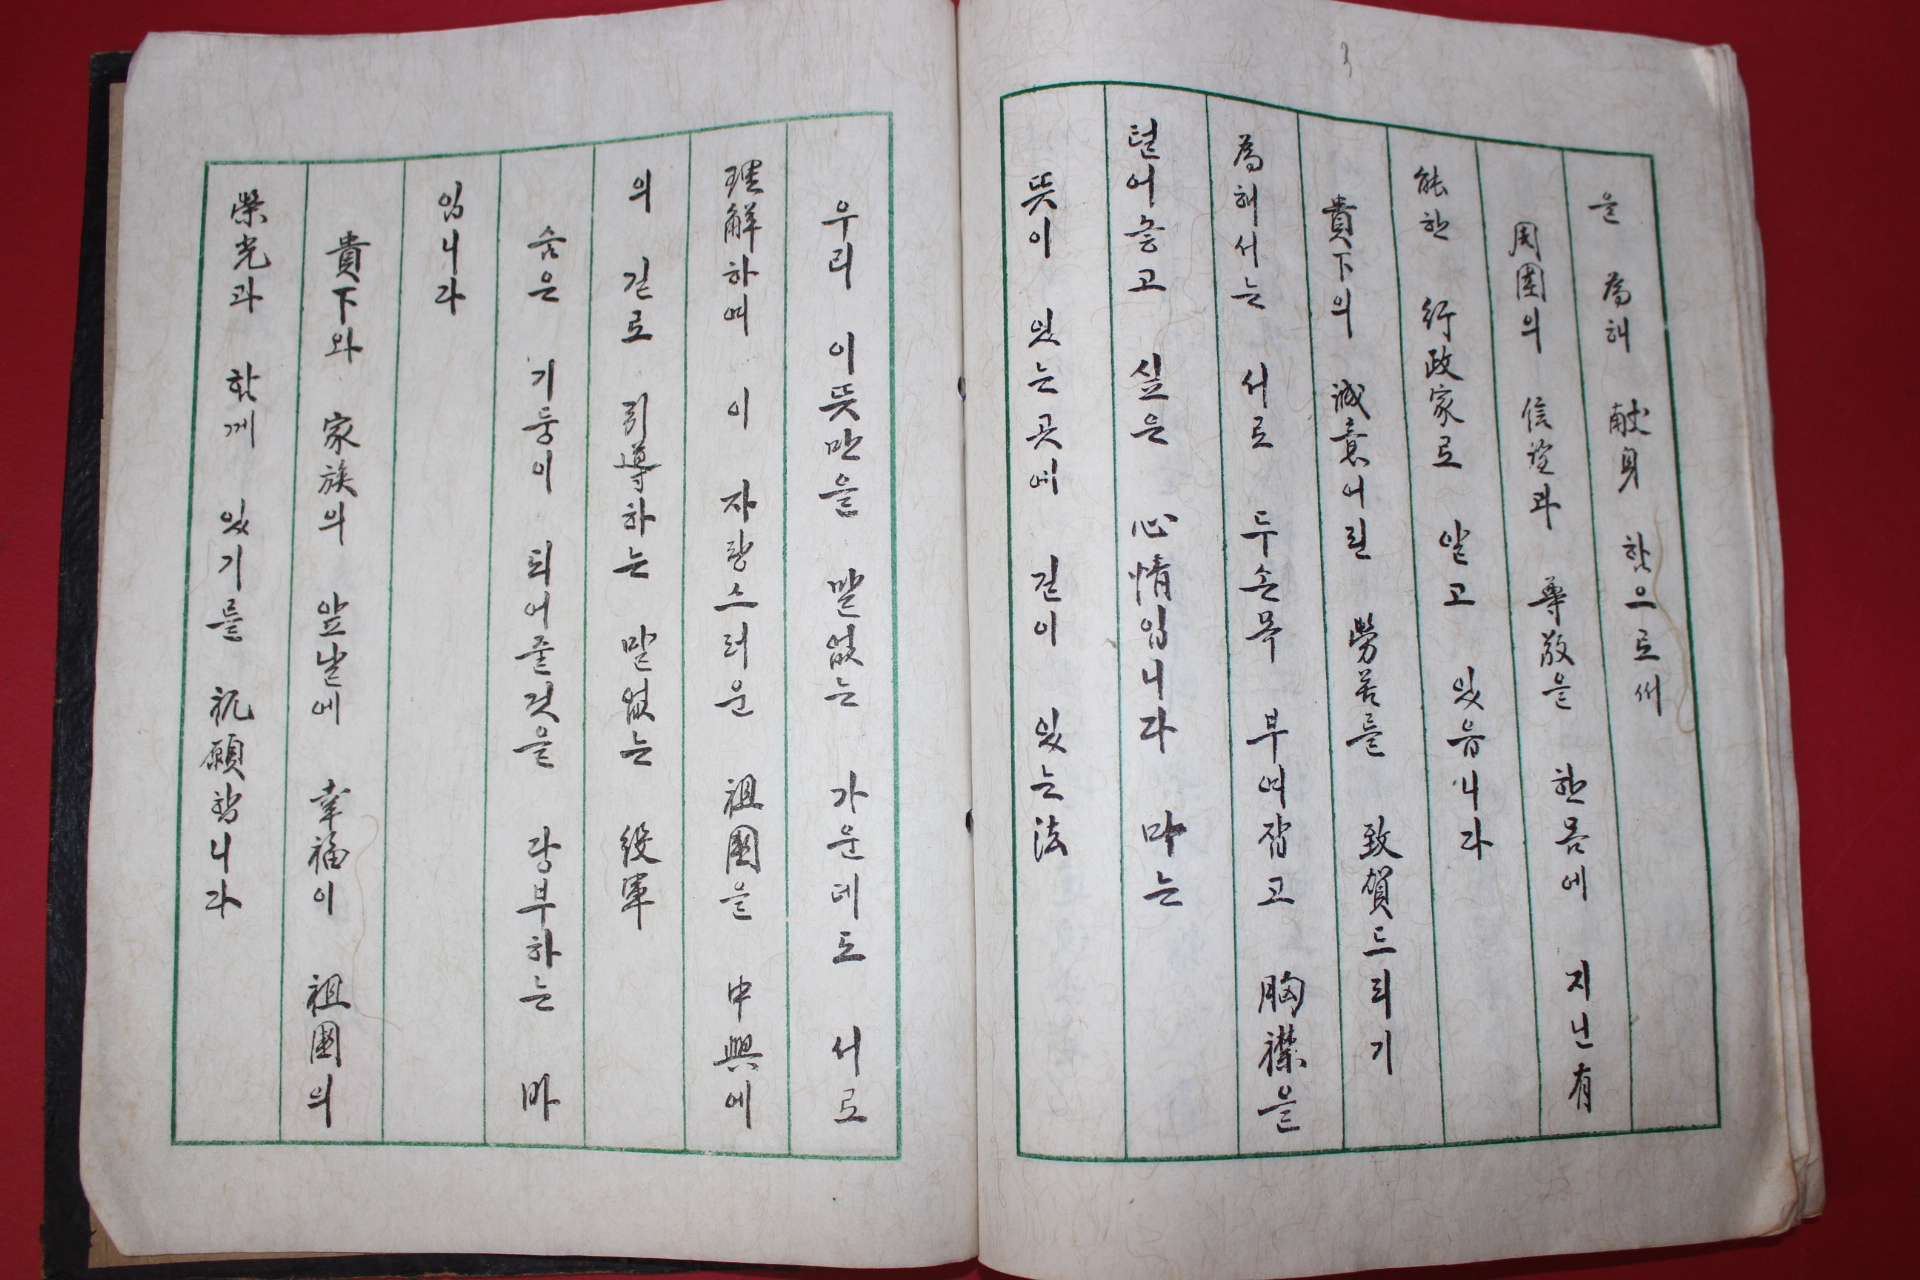 을 爲해 献身 함으로써
周圍의 信望과 尊敬을 한몸에 지닌 有
能한 行政家로 알고 있읍니다
貴下의 誠意어린 勞苦를 致賀드리기
爲해서는 서로 두손목 부여잡고 胸襟을
털어놓고 싶은 心情입니다 마는
뜻이 있는 곳에 길이 있는 法
우리 이뜻만을 말없는 가운데도 서로
理解하며 이 자랑스러운 祖國을 中興에
의 길로 引導하는 말없는 役軍
숨은 기둥이 되어줄것을 당부하는 바
입니다
貴下와 家族의 앞날에 幸福이 祖國의
榮光과 함께 있기를 祝願합니다